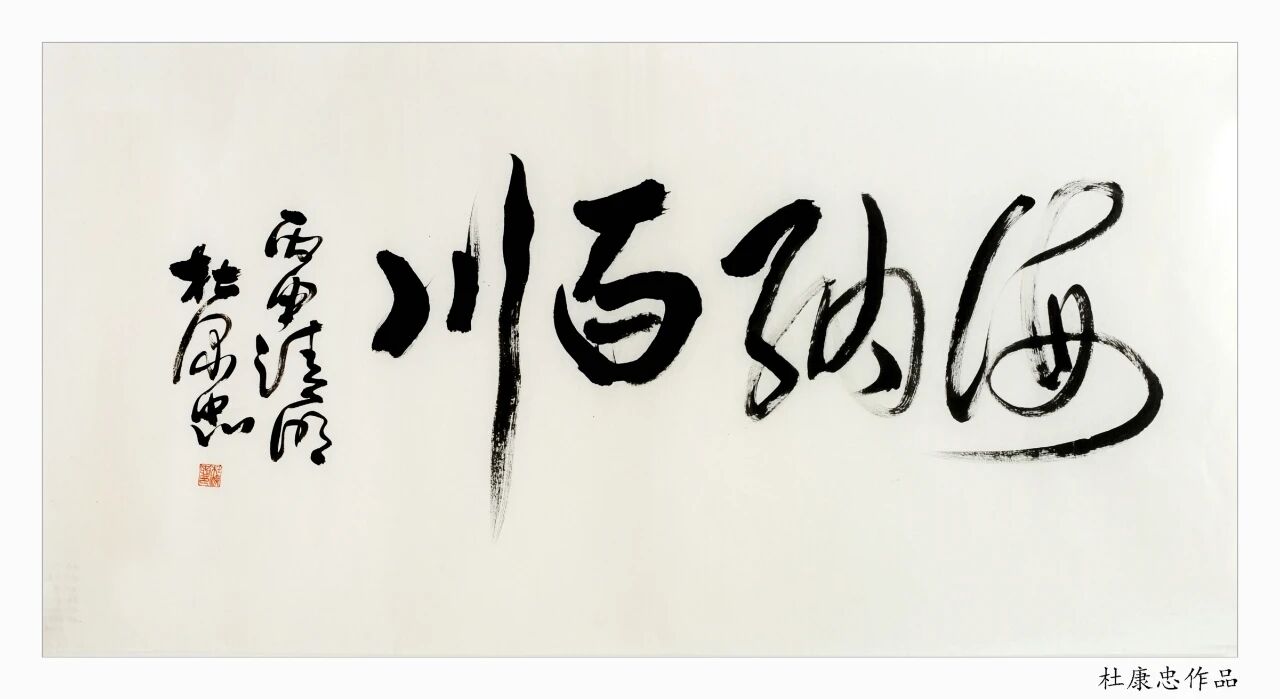 海纳百川
丙申清明
杜康忠
杜康忠作品